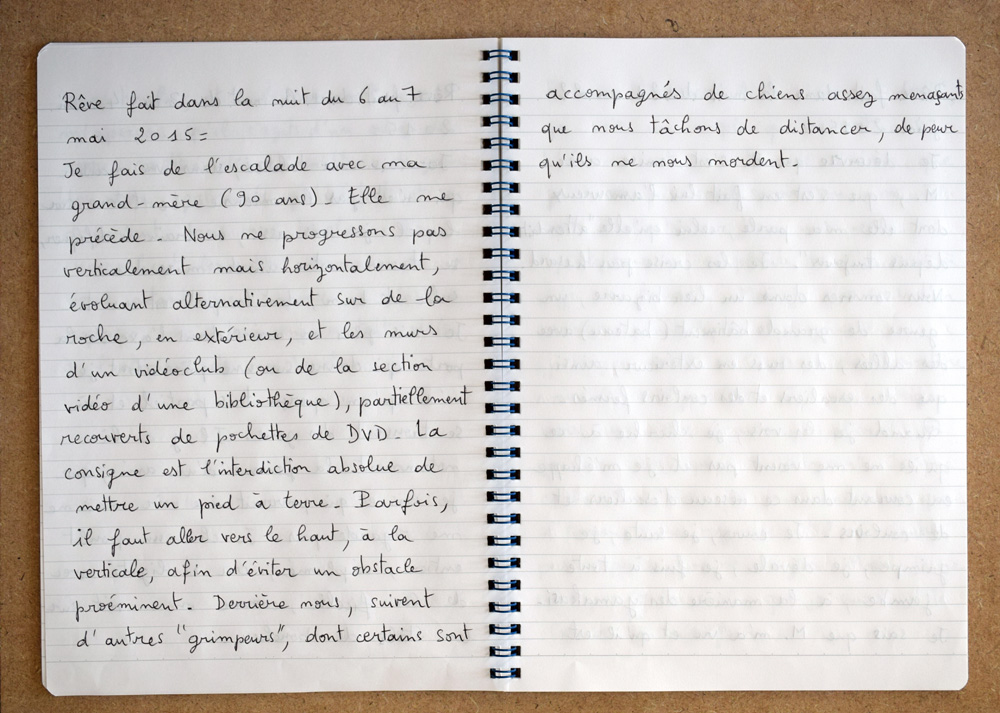 Rêve fait dans la nuit du 6 au 7
mai 2015 =
Je fais de l'escalade avec ma
grand-mère (90 ans). Elle me
précède. Nous ne progressons pas
verticalement mais horizontalement,
évoluant alternativement sur de la
roche, en extérieur, et les murs
d'un vidéoclub (ou de la section
vidéo d'une bibliothèque), partiellement
recouverts de pochettes de DVD. La
consigne est l'interdiction absolue de
mettre un pied à terre. Parfois,
il faut aller vers le haut, à la
verticale, afin d'éviter un obstacle
proéminent. Derrière nous, suivent
d'autres "grimpeurs", dont certains sont
accompagnés de chiens assez menaçants
que nous tâchons de distancer, de peur
qu'ils ne nous mordent.